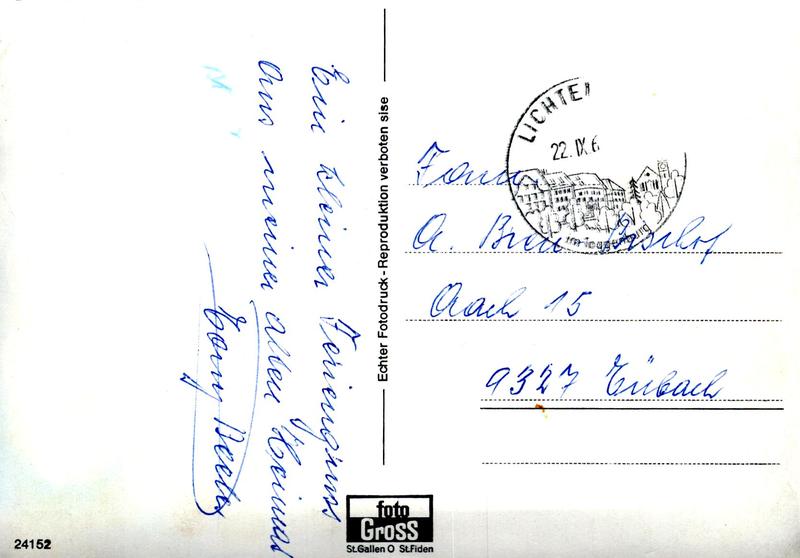 Ein kleiner Feriengruss
Aus meiner alten Heimat
Echter Fotodruck - Reproduktion verboten sise
LICHTE
22. IX 6
im Toggenburg
Fam.
A. Bischof
Aach 15
9327 Tübach
foto
Gross
St.Gallen O St.Fiden
24152